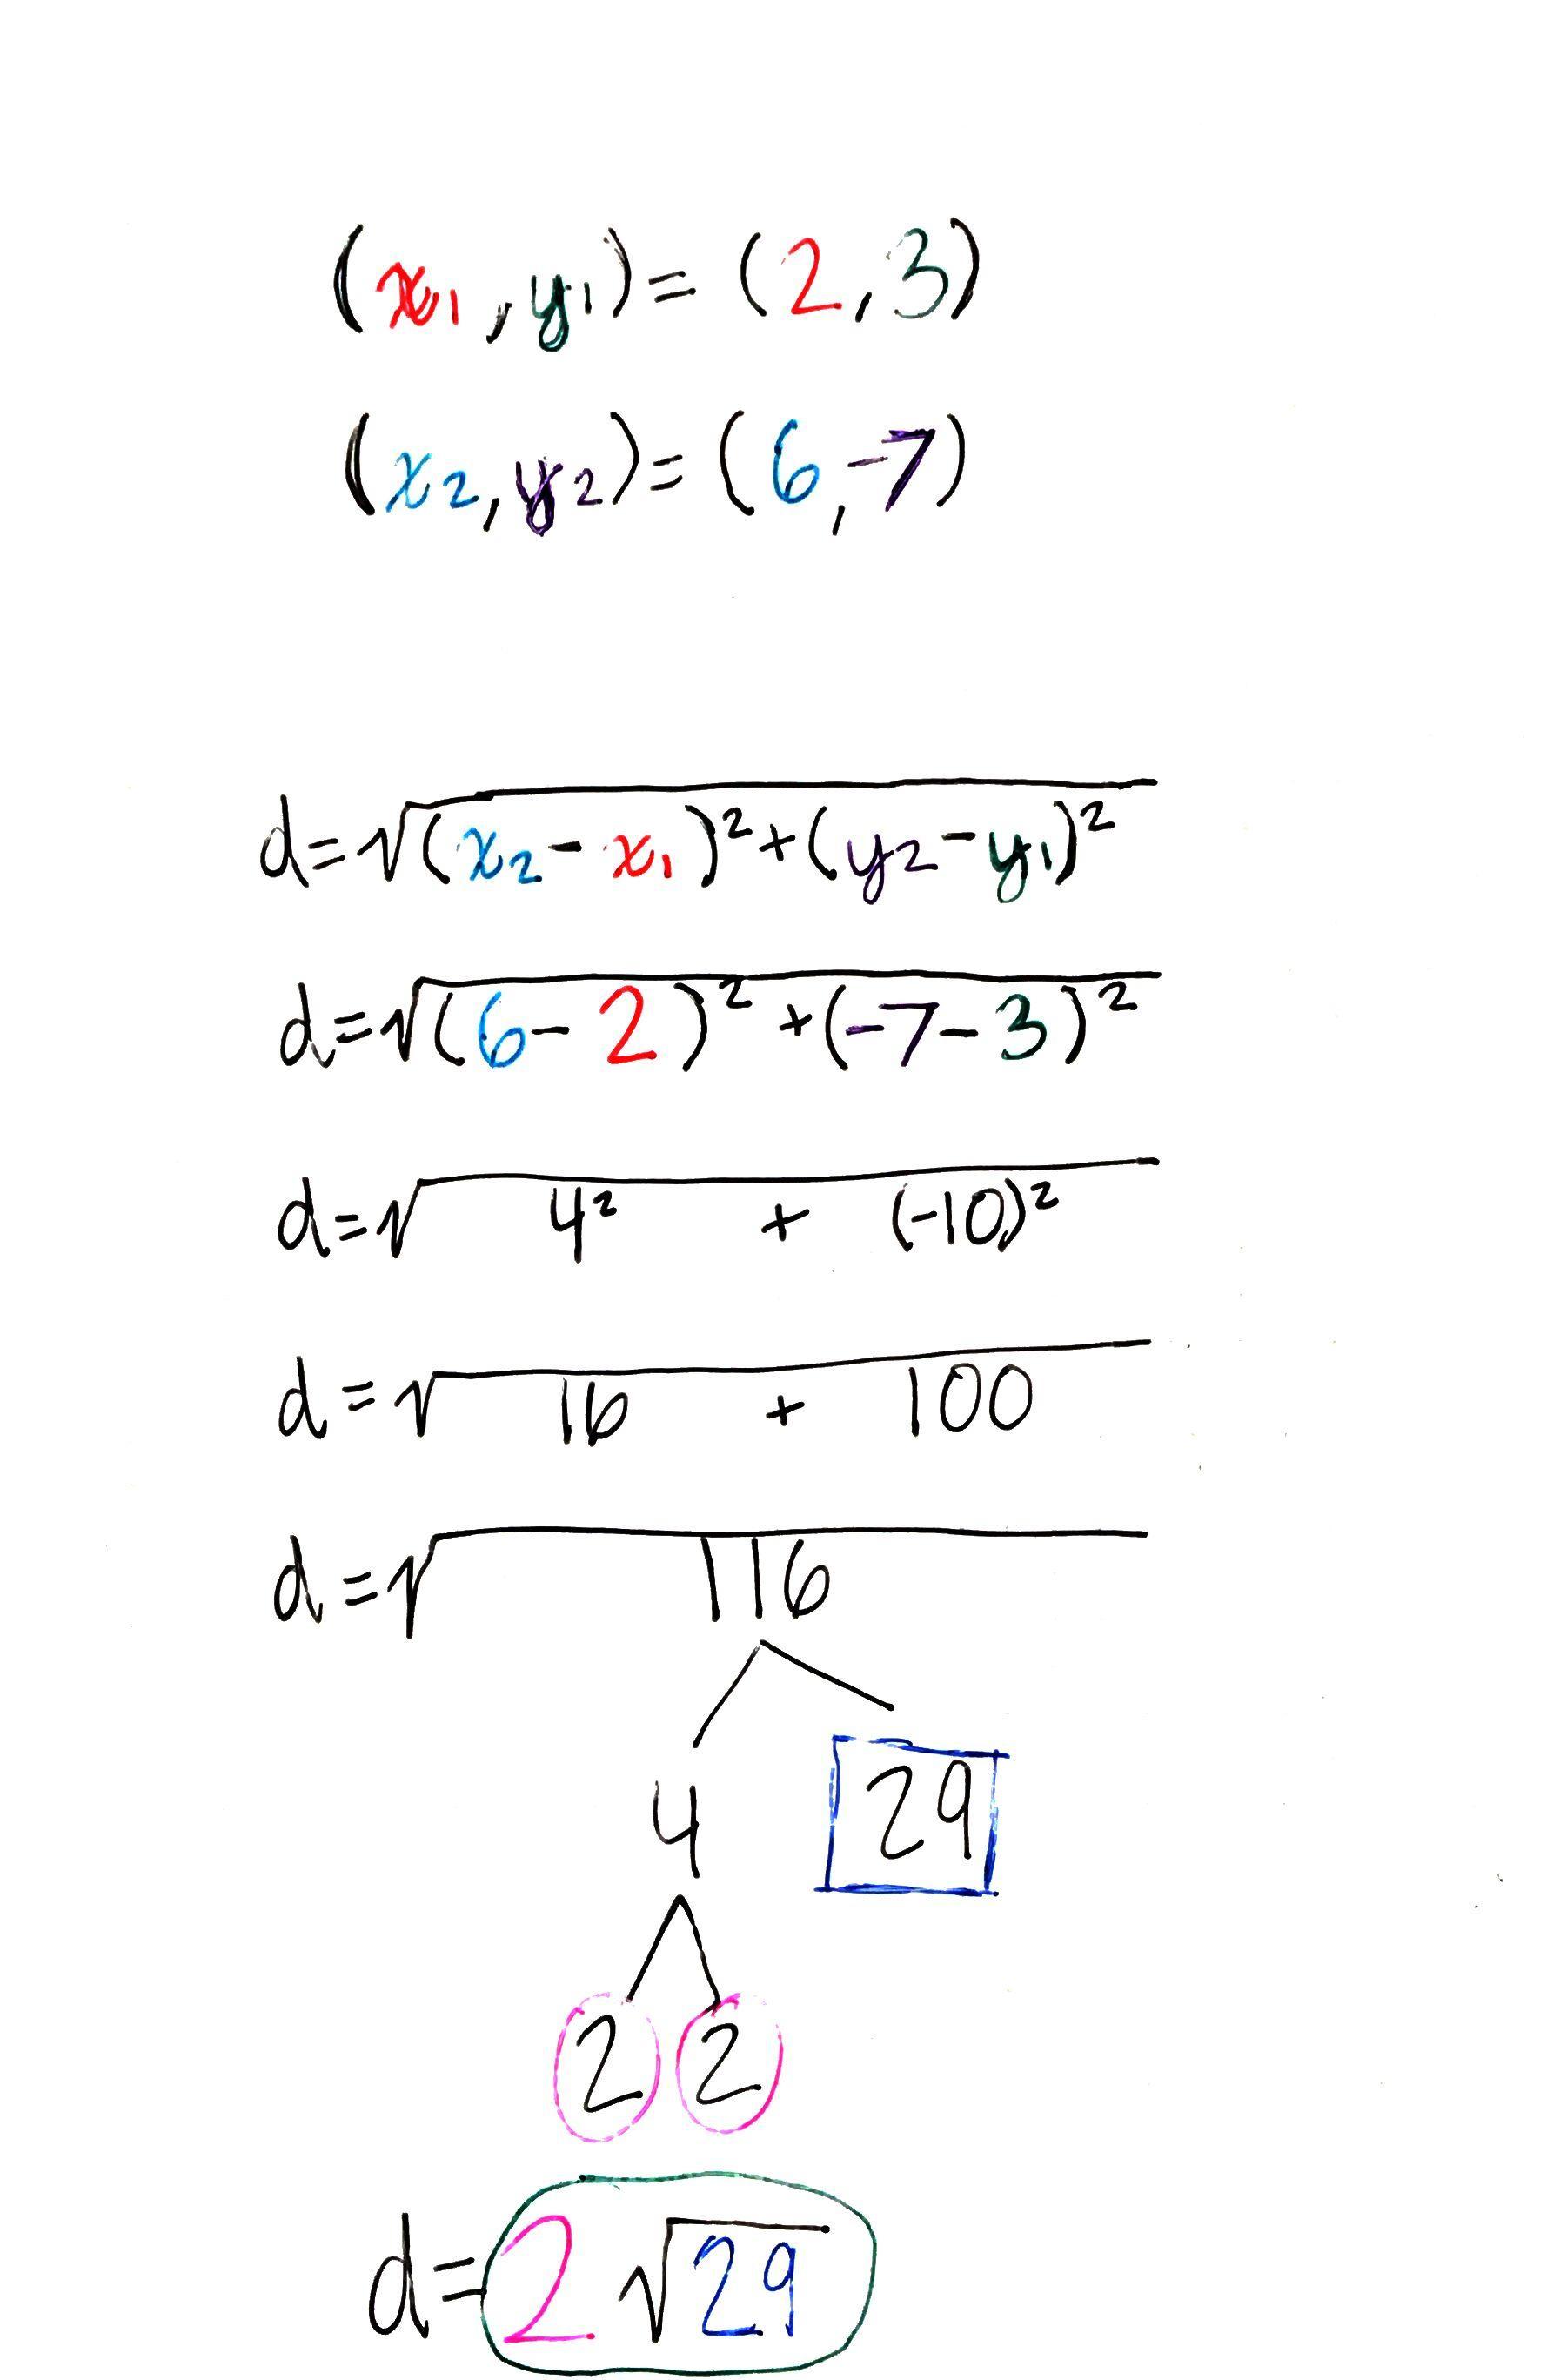 (x₁, y₁) = (2, 3)
(x₂, y₂) = (6, -7)
d = √((x₂ - x₁)² + (y₂ - y₁)²)
d = √((6 - 2)² + (-7 - 3)²)
d = √(4² + (-10)²)
d = √(16 + 100)
d = √116
4 29
2 2
d = 2√29